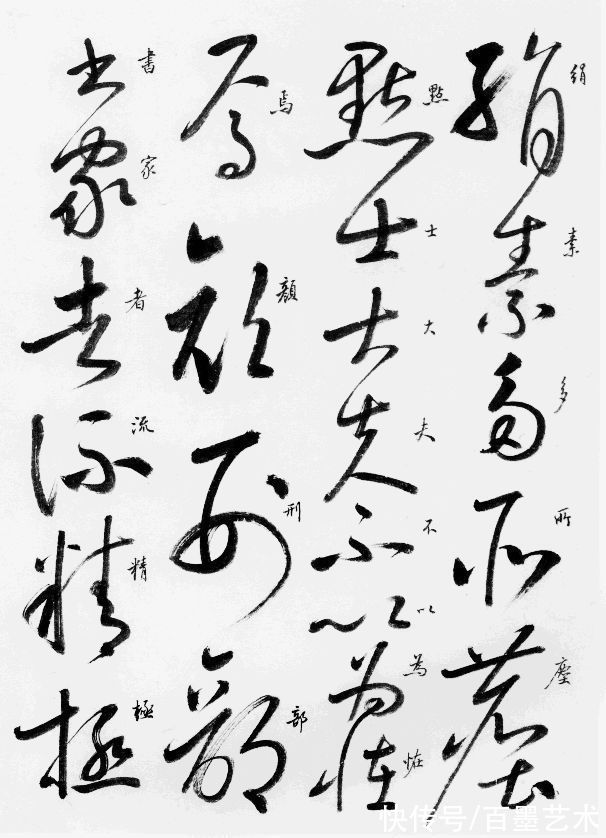 絹素多所塵
點士大夫不以為恠
焉顏刑部
書家者流精極
快传号/百墨艺术